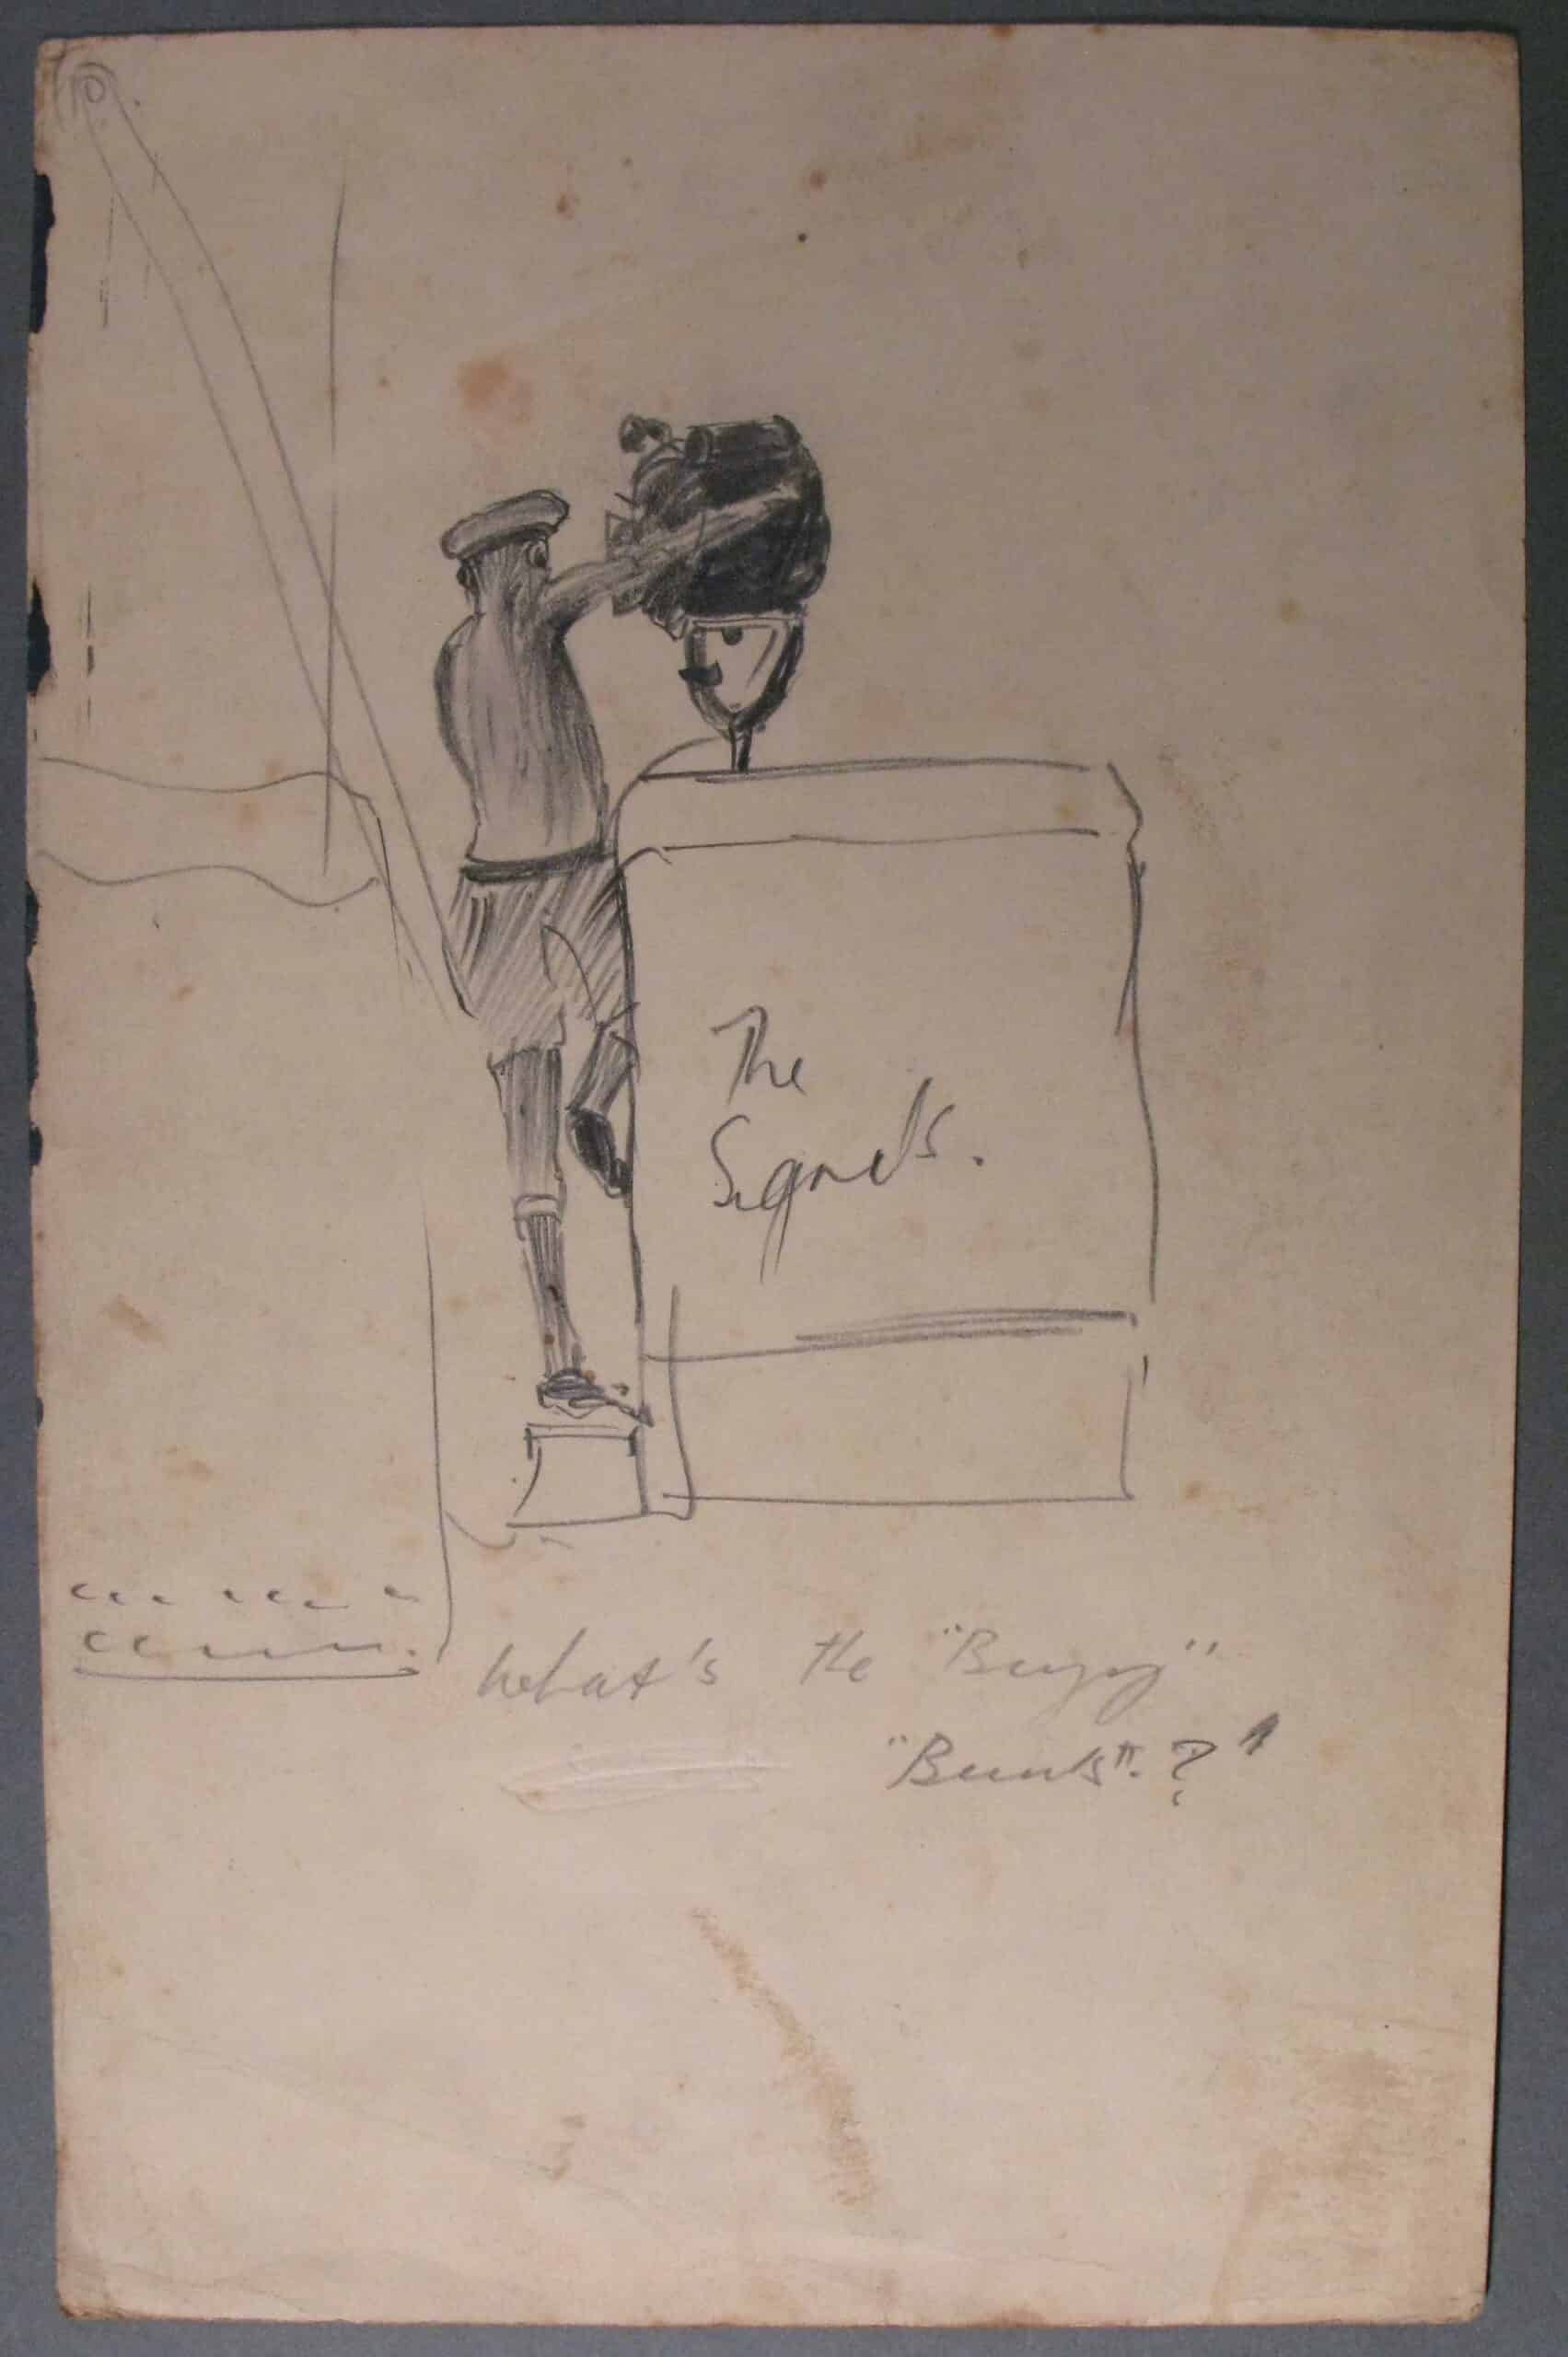 The
Signals.
What's the "Buzzy"
"Bunts". ?"